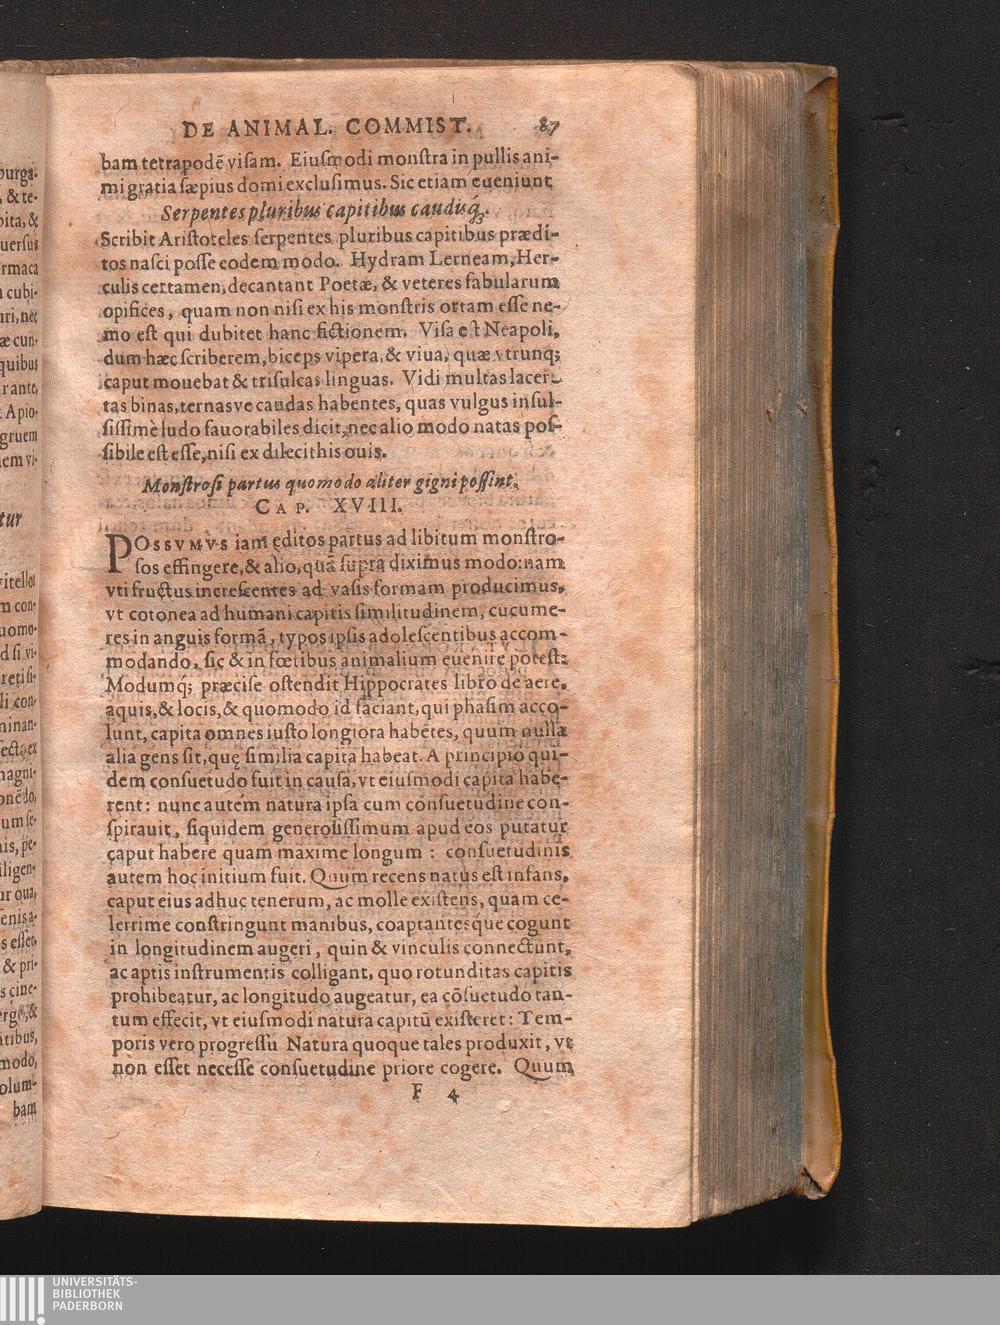 DE ANIMAL. COMMIST. 87
bam tetrapodē visam. Eiusmodi monstra in pullis ani-
mi gratia sæpius domi exclusimus. Sic etiam eueniunt
Serpentes pluribus capitibus caudisq́;.
Scribit Aristoteles serpentes pluribus capitibus prædi-
tos nasci posse eodem modo. Hydram Lerneam, Her-
culis certamen, decantant Poetæ, & veteres fabularum
opifices, quam non nisi ex his monstris ortam esse ne-
mo est qui dubitet hanc fictionem. Visa est Neapoli,
dum hæc scriberem, biceps vipera, & viua, quæ vtrunq;
caput mouebat & trisulcas linguas. Vidi multas lacer-
tas binas, ternasve caudas habentes, quas vulgus insul-
sissime ludo fauorabiles dicit, nec alio modo natas pos-
sibile est esse, nisi ex dilecithis ouis.
Monstrosi partus quomodo aliter gigni possint.
CAP. XVIII.
POSSVMVS iam editos partus ad libitum monstro-
sos effingere, & alio, quā supra diximus modo: nam
vti fructus increscentes ad vasis formam producimus,
vt cotonea ad humani capitis similitudinem, cucume-
res in anguis formā, typos ipsis adolescentibus accom-
modando, sic & in fœtibus animalium euenire potest:
Modumq́; præcise ostendit Hippocrates libro de aere,
aquis, & locis, & quomodo id faciant, qui phasim acco-
lunt, capita omnes iusto longiora habētes, quum nulla
alia gens sit, quę similia capita habeat. A principio qui-
dem consuetudo fuit in causa, vt eiusmodi capita habe-
rent: nunc autem natura ipsa cum consuetudine con-
spirauit, siquidem generosissimum apud eos putatur
caput habere quam maxime longum: consuetudinis
autem hoc initium fuit. Quum recens natus est infans,
caput eius adhuc tenerum, ac molle existens, quam ce-
lerrime constringunt manibus, coaptantesque cogunt
in longitudinem augeri, quin & vinculis connectunt,
ac aptis instrumentis colligant, quo rotunditas capitis
prohibeatur, ac longitudo augeatur, ea cōsuetudo tan-
tum effecit, vt eiusmodi natura capitū existeret: Tem-
poris vero progressu Natura quoque tales produxit, vt
non esset necesse consuetudine priore cogere. Quum
F 4
burga-
, & te-
bita, &
uersus
rmaca
cubi-
uri, nec
æ cun-
quibus
rante,
Apio-
gruem
em vi-
tur
vitellos
m con-
uomo-
d si vi-
li con-
minan-
magni-
um se-
iligen-
ur qua,
s esset,
& pri-
s cine-
ergo, &
ntibus,
modo,
olum-
bam
UNIVERSITÄTS-
BIBLIOTHEK
PADERBORN